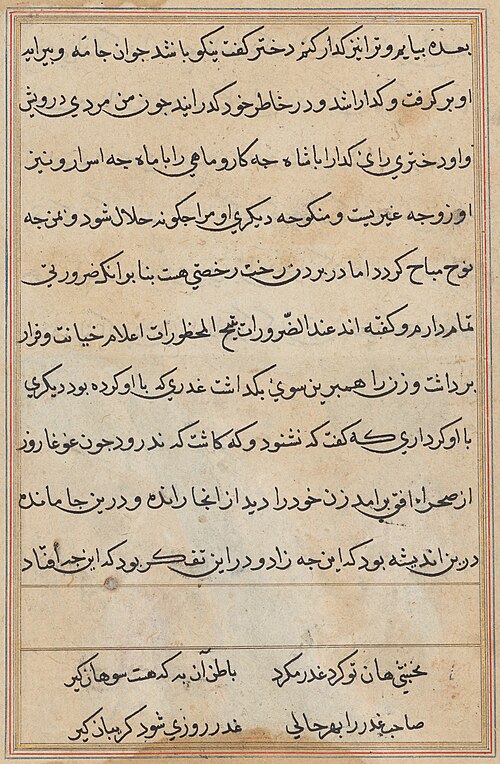 بعده بیایم و ترا نیز کدار کنم دختر کفت نیکو باشد جوان جامه و پیرایه
او بر کرفت و کدارا شد و در خاطر خود کدرانید جون من مردی درویش
و او دختری رای کدا را با شاه جه کار و ماهی را با ماه جه اسرار و نیز
او زوجه غیریست و منکوحه دیکری او مرا جکونه حلال شود و بمن جه
نوع مباح کردد اما در بردن رخت رخصتی هست بنا بر انک ضرورتی
تمام دارم و کفته اند عند الضّرورات تبیح المحظورات اعلام خیانت و فرار
برداشت و زن را همبرین سوی بکداشت غدری که با او کرده بود دیکری
با او کرد اری که کفت که نشنود و که کاشت که ندرود جون غوغا روز
از صحراء افق برامد زن خود را دید از انجا رانده و درین جا مانده
درین اندیشه بود که این جه زاد و در این تفکر بود که این جه افتاد
نخشبی هان تو کرد غدر مکرد باطن آن به که هست سوهان کیر
صاحب غدر را بهر حالی غدر روزی شود کریبان کیر